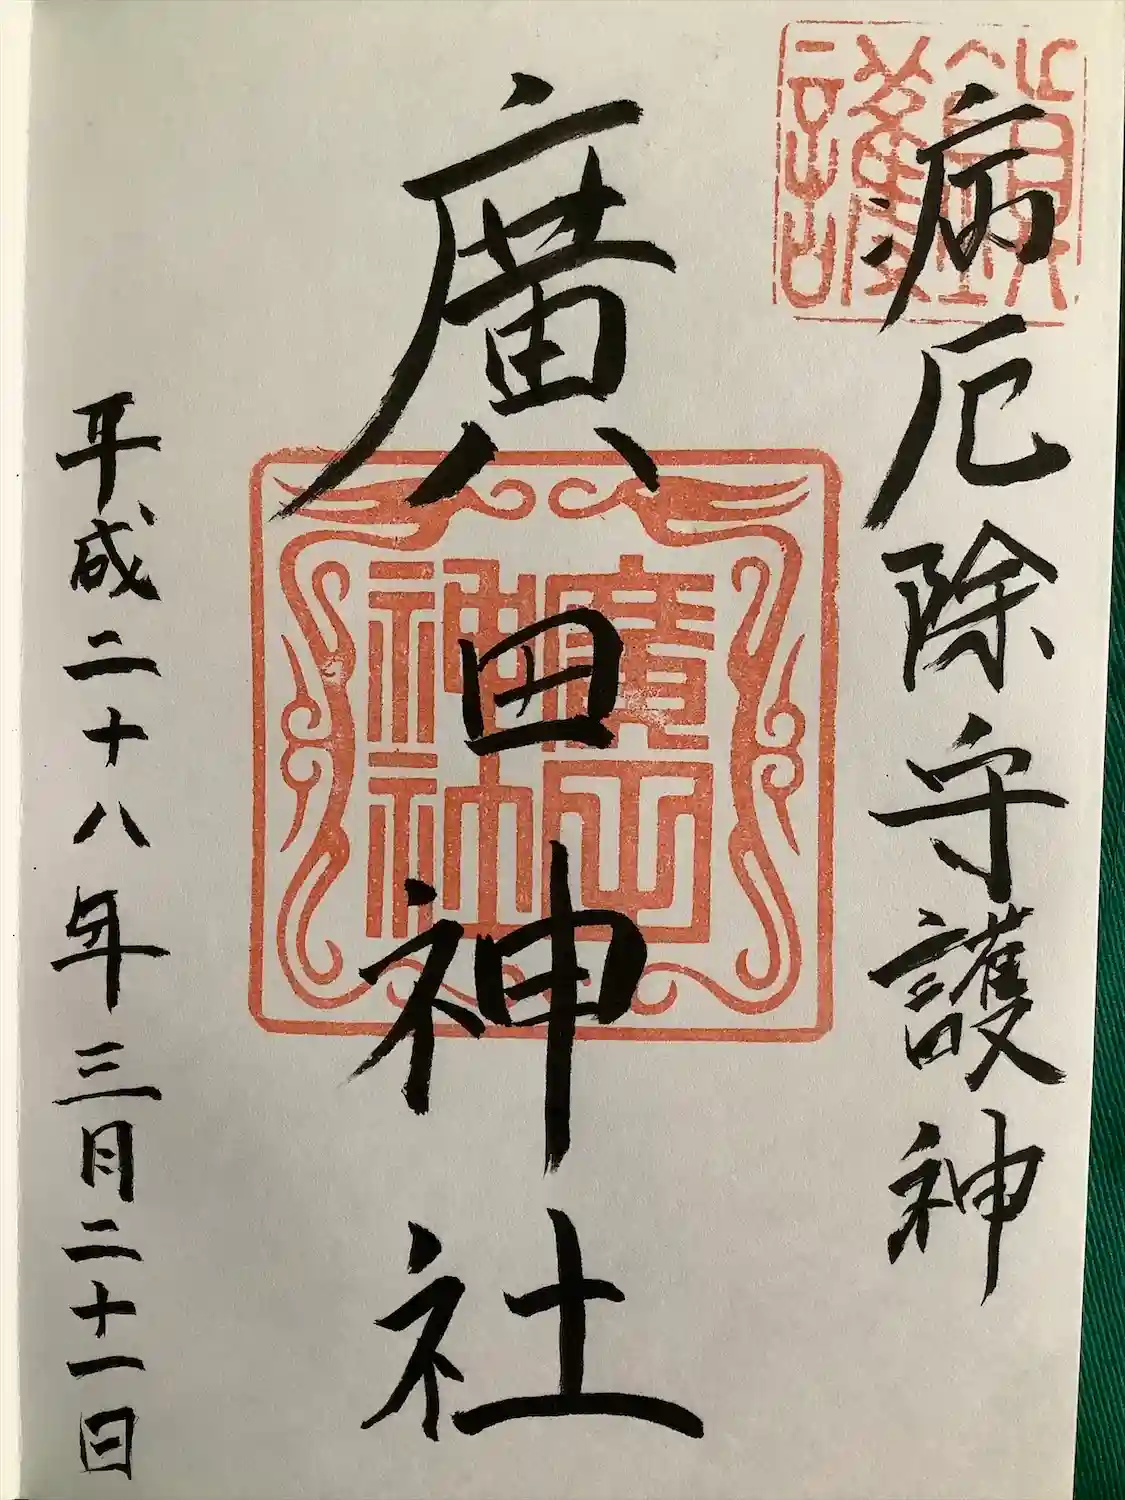 鎮護
病厄除守護神
廣田神社
廣田神社
平成二十八年三月二十一日